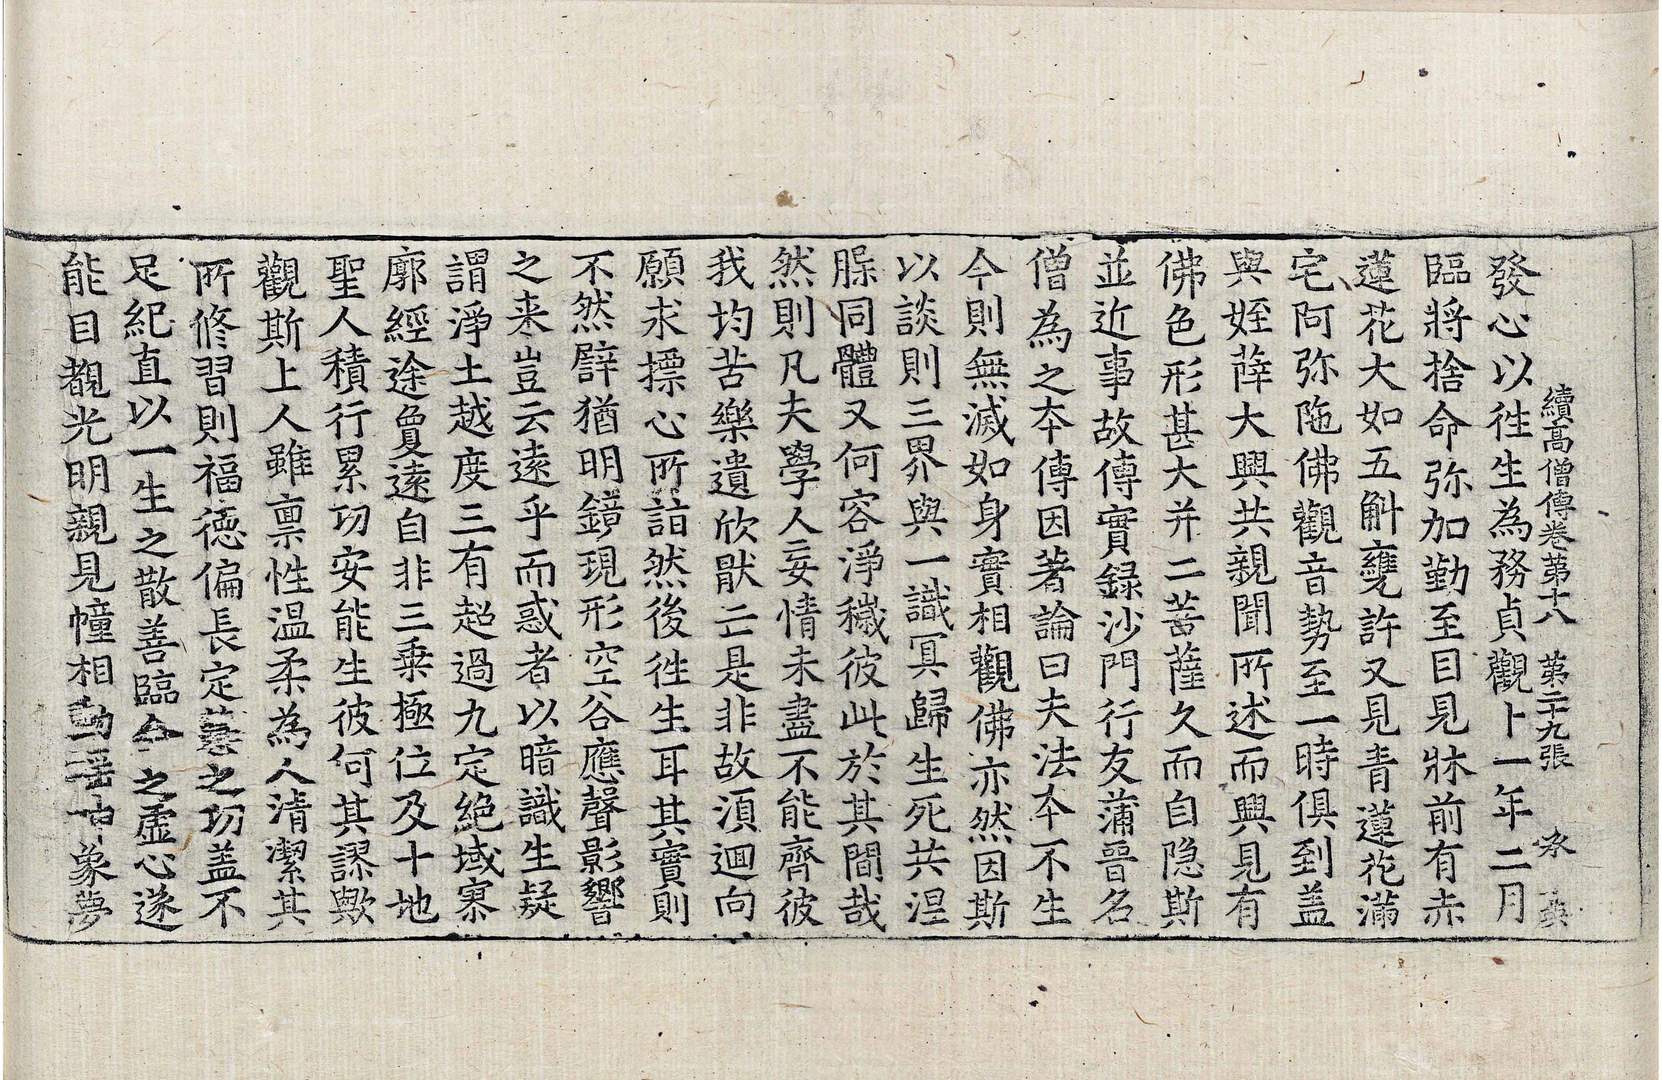 續高僧傳卷第十八　第二十九張　承
發心以徃生為務貞觀卜一年二月
臨將捨命弥加勤至目見牀前有赤
蓮花大如五斛甕許又見青蓮花滿
宅阿弥陁佛觀音勢至一時俱到盖
與姪薛大興共親聞所述而興見有
佛色形甚大并二菩薩久而自隐斯
並近事故傳實録沙門行友蒲晉名
僧為之本傳因著論曰夫法本不生
今則無滅如身實相觀佛亦然因斯
以談則三界與一識冥歸生死共涅
脲同體又何容淨穢彼此於其間哉
然則凡夫學人妄情未盡不能齊彼
我均苦樂遺欣猒亡是非故湏迴向
願求摽心所詣然後徃生耳其實則
不然譬猶明鏡現形空谷應聲影響
之来豈云遠乎而惑者以暗識生疑
謂淨土越度三有超過九定絶域寮
廓經途敻遠自非三乗極位及十地
聖人積行累功安能生彼何其謬歟
觀斯上人雖禀性温柔為人清潔其
所修習則福徳偏長定慧之功盖不
足紀直以一生之散善臨命之虛心遂
能目覩光明親見幢相動揺中象夢